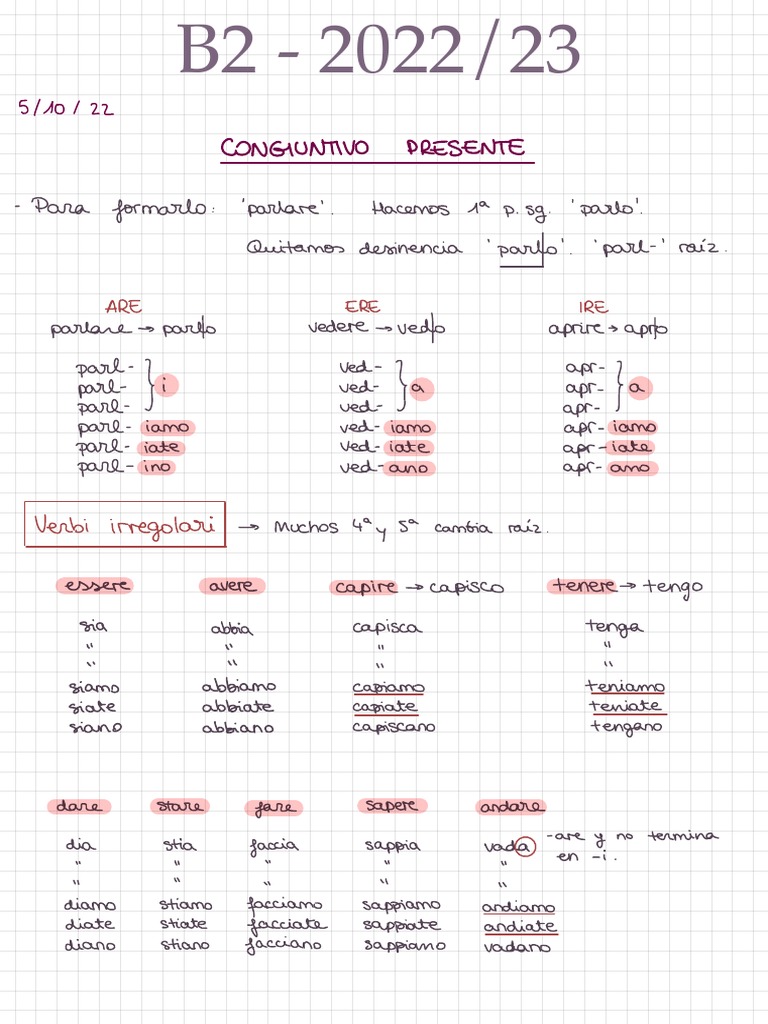 B2 - 2022/23
5/10/22
CONGIUNTIVO PRESENTE
- Para formarlo: 'parlare'. Hacemos 1ª p. sg. 'parlo'.
Quitamos desinencia 'parl/o'. 'parl-' raíz.
ARE ERE IRE
parlare → parl/o vedere → ved/o aprire → apr/o
parl- ved- apr-
parl- } i ved- } a apr- } a
parl- ved- apr-
parl- iamo ved- iamo apr- iamo
parl- iate ved- iate apr- iate
parl- ino ved- ano apr- ano
Verbi irregolari → Muchos 4ª y 5ª cambia raíz.
essere avere capire → capisco tenere → tengo
sia abbia capisca tenga
" " " "
" " " "
siamo abbiamo capiamo teniamo
siate abbiate capiate teniate
siano abbiano capiscano tengano
dare stare fare sapere andare
dia stia faccia sappia vada -are y no termina
" " " " " en -i.
" " " " "
diamo stiamo facciamo sappiamo andiamo
diate stiate facciate sappiate andiate
diano stiano facciano sappiano vadano